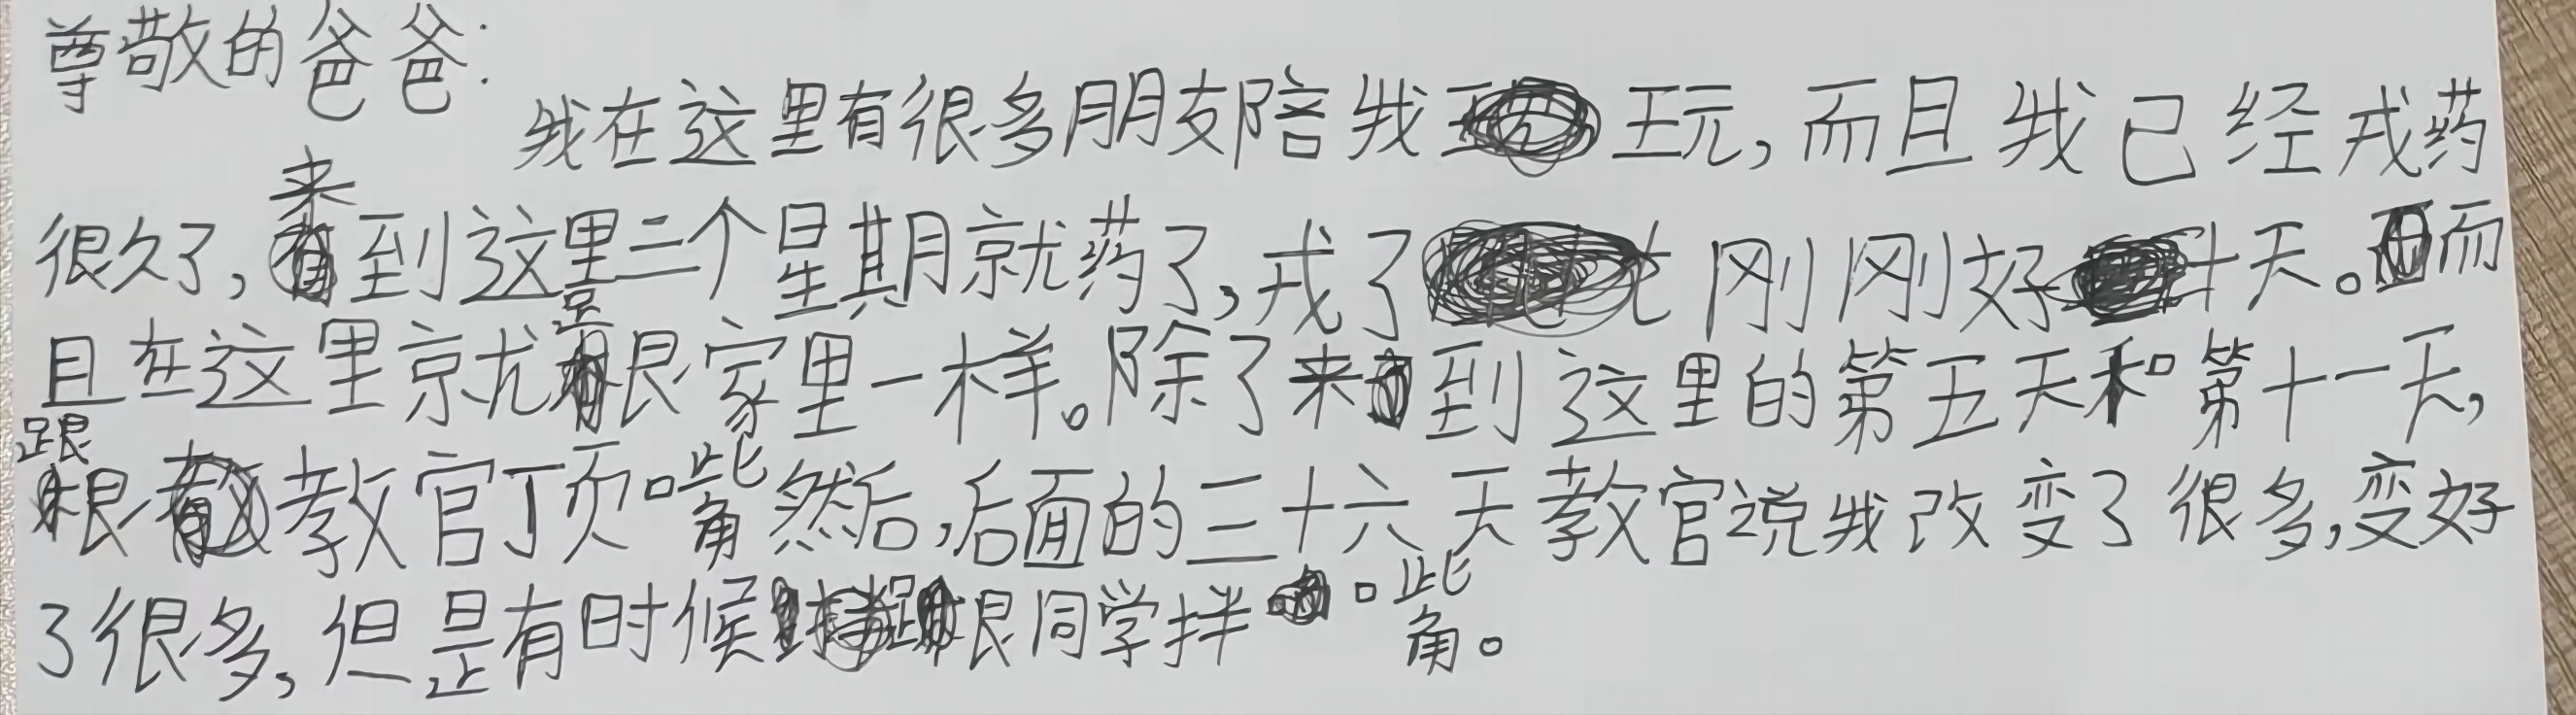 尊敬的爸爸:
我在这里有很多朋友陪我玩,而且我已经戒药
很久了,来到这里三个星期就药了,戒了刚刚好十天。而
且在这里就跟家里一样。除了来到这里的第五天和第十一天,
跟教官顶嘴然后,后面的三十六天教官说我改变了很多,变好
了很多,但是有时候跟同学拌嘴。